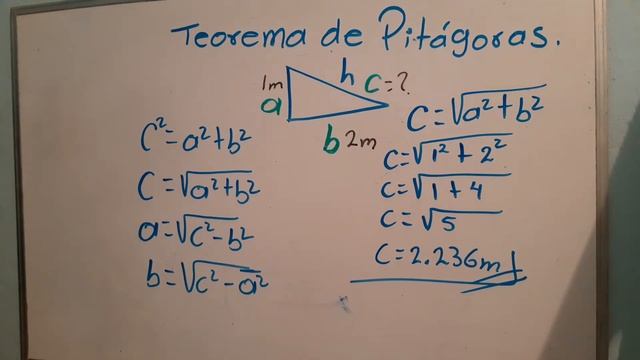 Teorema de Pitágoras.
1m
a
h
c=?
b 2m
C²=a²+b²
C=√a²+b²
a=√c²-b²
b=√c²-a²
C=√a²+b²
c=√1²+2²
c=√1+4
c=√5
c=2.236m